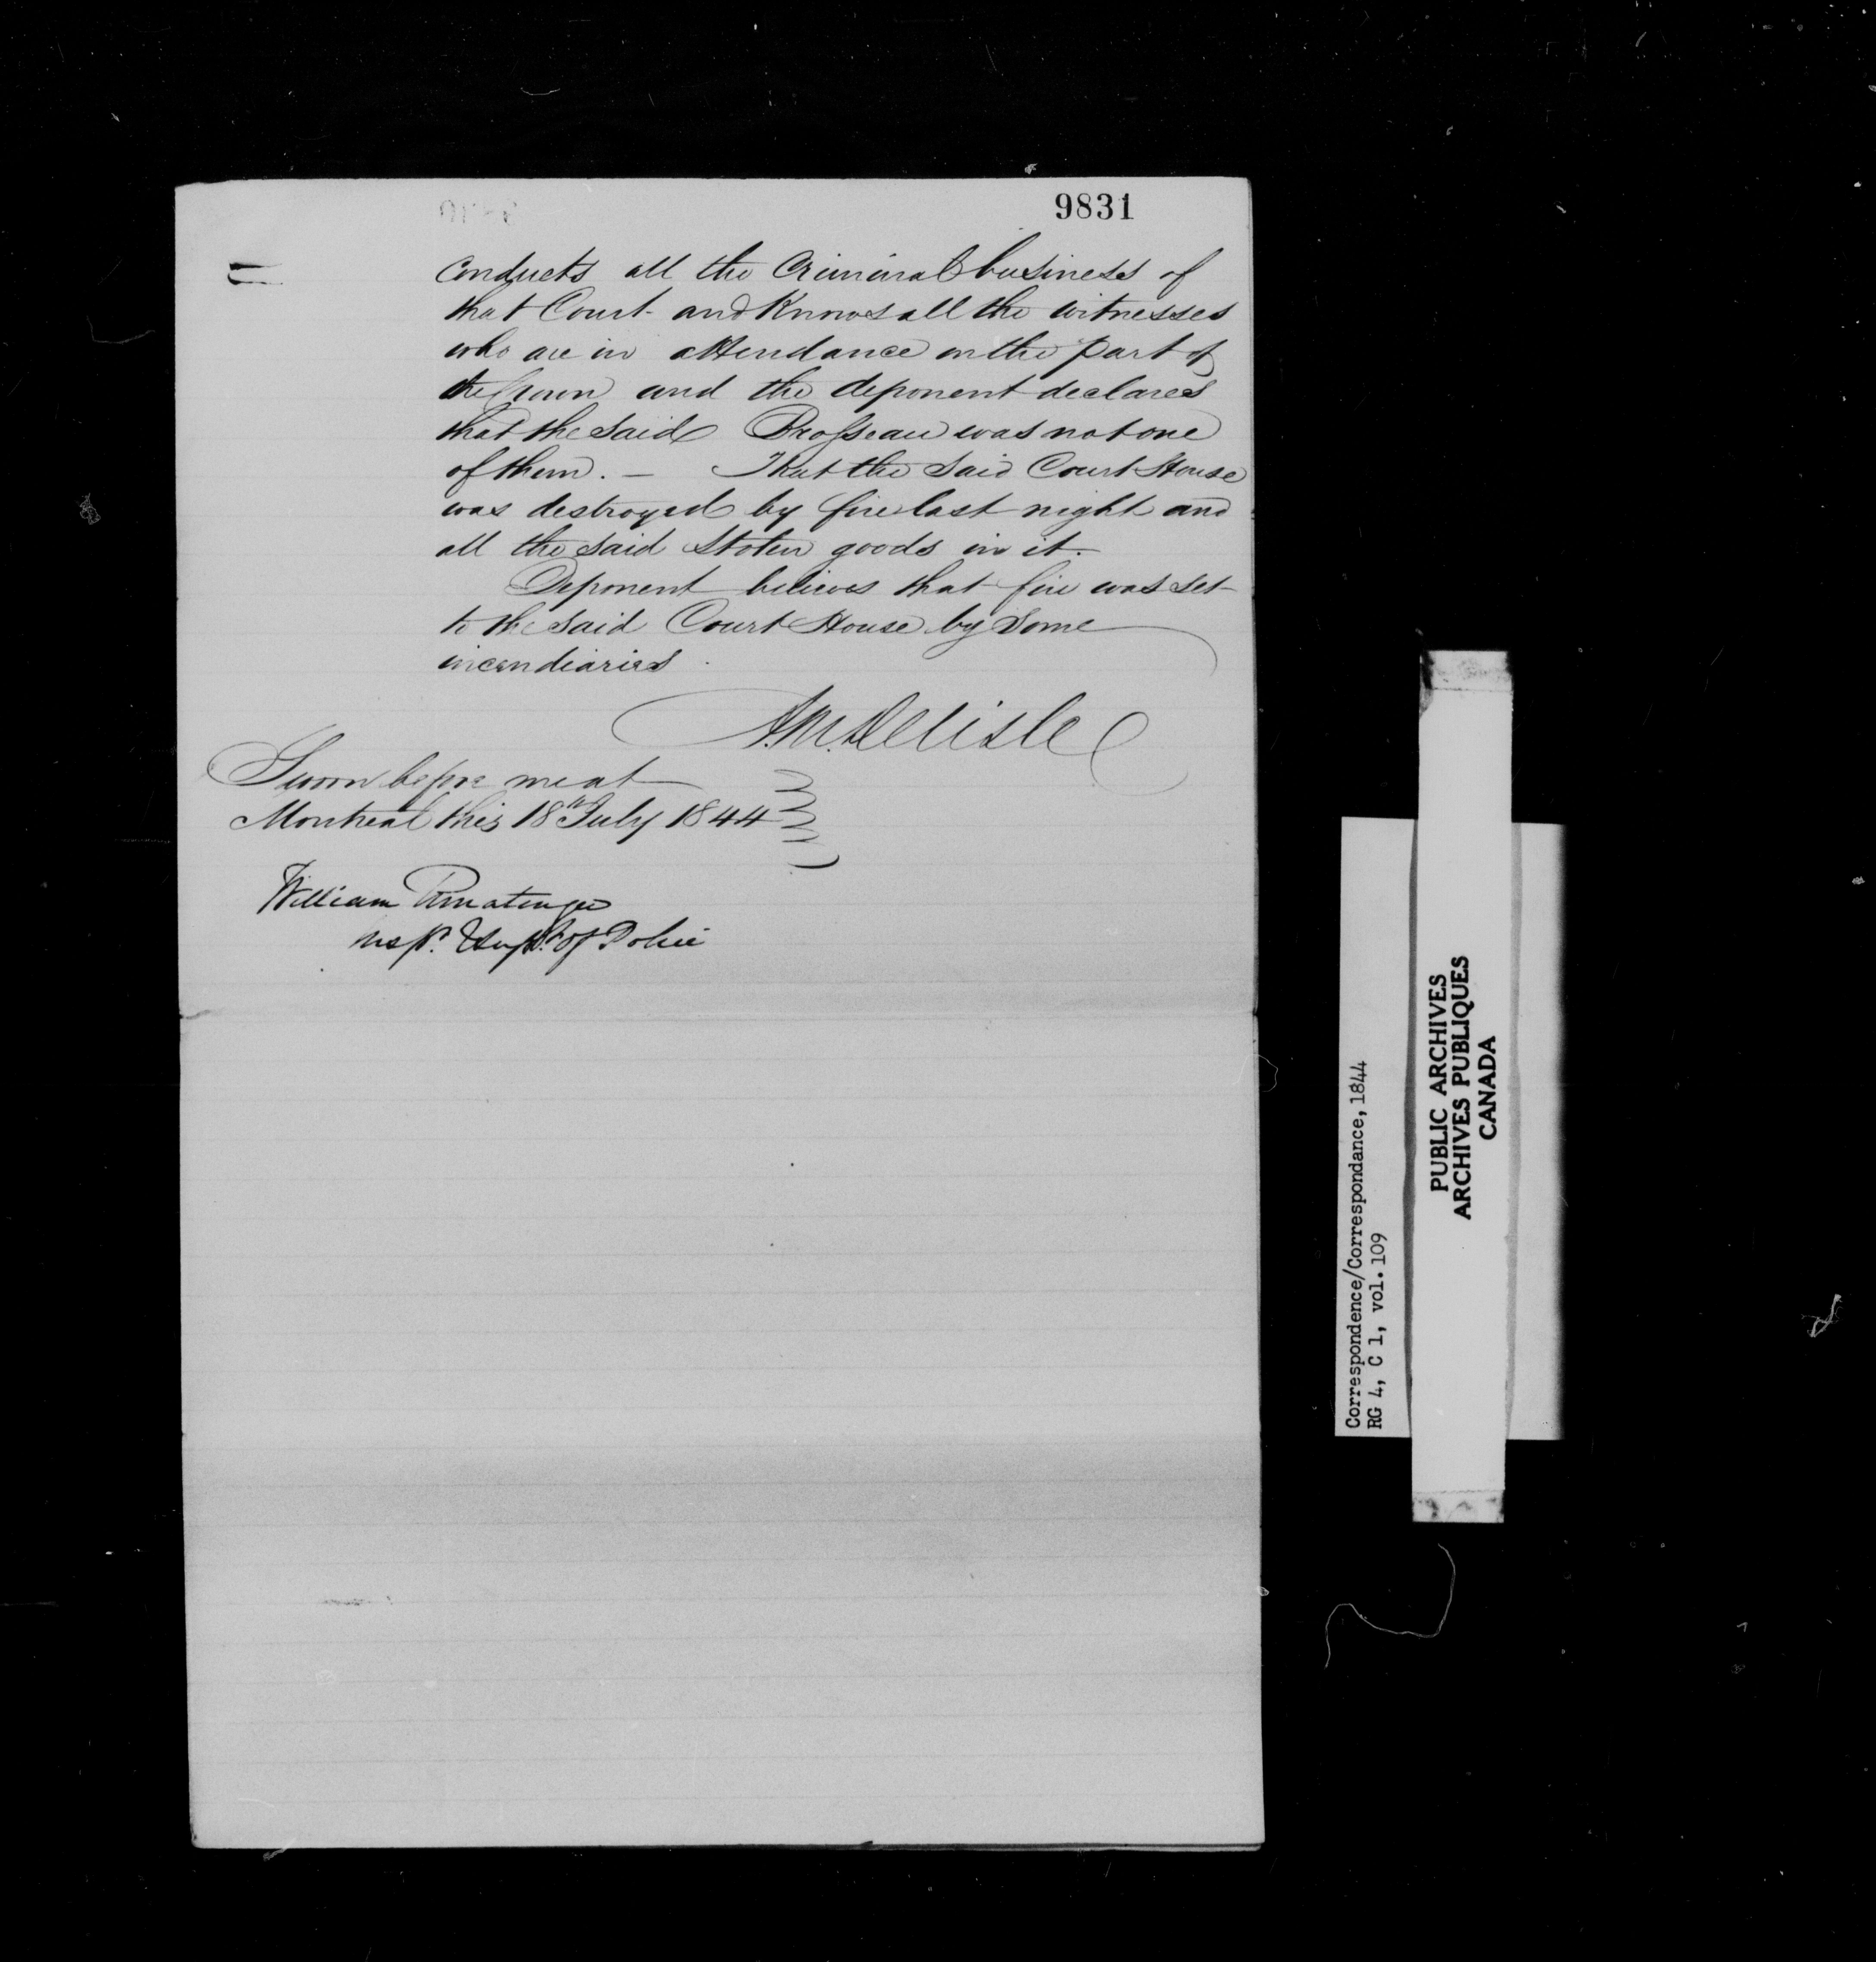 9831
conducts all the Criminal business of
that Court and Knows all the witnesses
who are in attendance on the part of
the Crown and the deponent declares
that the said Brosseau was not one
of them. — That the said Court House
was destroyed by fire last night and
all the said stolen goods in it.
Deponent believes that fire was set
to the said Court House by some
incendiaries.
A.M. Delisle
Sworn before me at
Montreal this 18th July 1844
William Ermatinger
Insp. & Supt. of Police
Correspondence/Correspondance, 1844
RG 4, C 1, vol. 109
PUBLIC ARCHIVES
ARCHIVES PUBLIQUES
CANADA